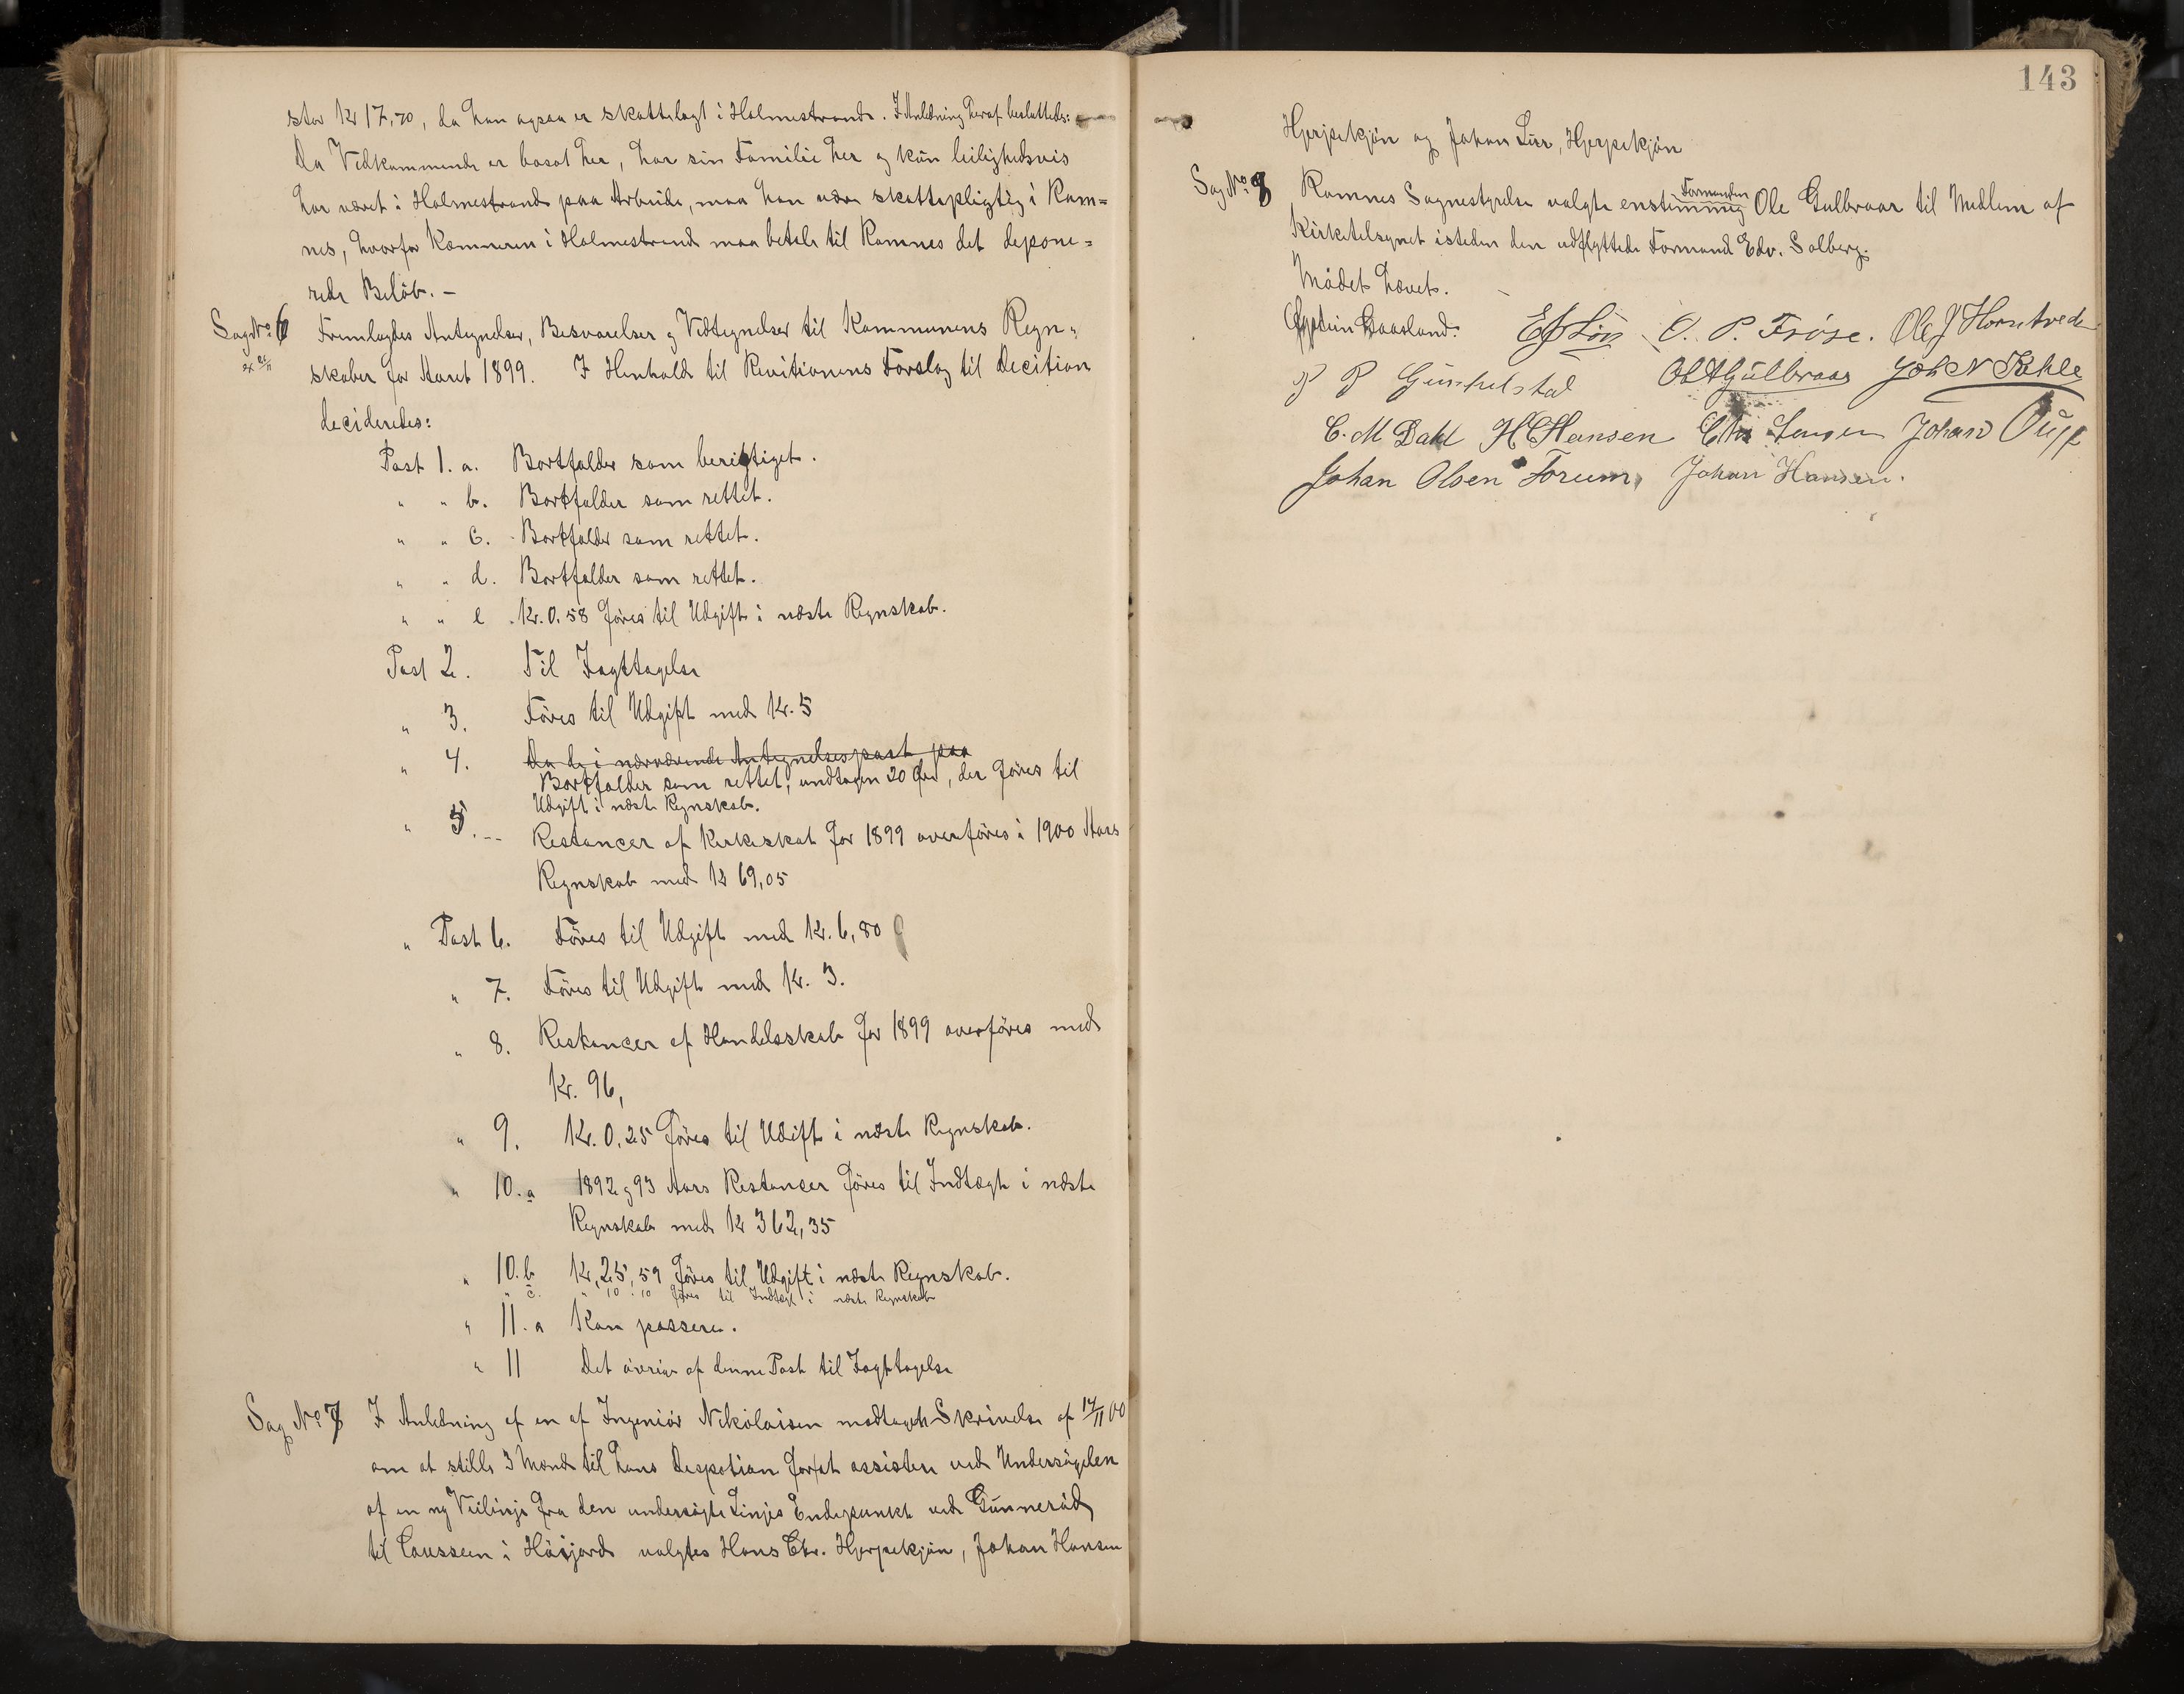 stor Kr 17,70, da han ogsaa er skattelagt i Holmestrand. I Anledning heraf besluttedes:
Da Vedkommende er bosat her, har sin Familie her og kŭn leilighedsvis
har været i Holmestrand paa Arbeide, maa han være skattepligtig i Ram=
nes, hvorfor Kæmneren i Holmestrand maa betale til Ramnes det depone=
rede Beløb. —
Sag No. 6 Fremlagdes Antegnelser, Besvarelser og Vedtegnelser til Kommunens Regn=
skaber for Aaret 1899. I Henhold til Revitionens Forslag til Decition
decideredes:
Post 1. a. Bortfalder som berigtiget.
" " b. Bortfalder som rettet.
" " c. Bortfalder som rettet.
" " d. Bortfalder som rettet.
" " e. Kr. 0.58 føres til Udgift i næste Regnskab.
Post 2. Til Iagttagelse
" 3. Føres til Udgift med Kr. 5
" 4. Da de i nærværende Antegnelsespost paa
Bortfalder som rettet, undtagen 20 Øre, der føres til
Udgift i næste Regnskab.
" 5. — Restancer af Kirkeskat for 1899 overføres i 1900 Aars
Regnskab med Kr 69,05
" Post 6. Føres til Udgift med Kr. 6,80
" 7. Føres til Udgift med Kr. 3.
" 8. Restancer af Handelsskat for 1899 overføres med
Kr. 96,
" 9. Kr. 0.25 føres til Udgift i næste Regnskab.
" 10. a 1892 og 93 Aars Restancer føres til Indtægt i næste
Regnskab med Kr 362,35
" 10. b Kr, 25,59 føres til Udgift i næste Regnskab.
" c. " 10.10 føres til Indtægt i næste Regnskab
" 11. a Kan passere.
" 11 Det øvrige af denne Post til Iagttagelse
Sag No. 7 I Anledning af en af Ingeniør Nikolaisen modtaget Skrivelse af 14/11 00
om at stille 3 Mand til hans Despotion for at assistere ved Undersøgelen
af en ny Veilinje fra den undersøgte Linjes Endepunkt ved Gŭnnerød
til Caŭsseen i Høijord valgtes Hans Chr. Hjerpekjøn, Johan Hansen
143
Hjerpekjøn og Johan Lier, Hjerpekjøn
Sag No. 8 Ramnes Sognestyrelse valgte enstemmig Formanden Ole Gulbraar til Medlem af
Kirketilsynet isteden den udflyttede Formand Edv. Solberg.
Mødet hævet.
Øystein Gaasland. O. P. Frøse. Ole J Horntvedt
P P Gŭnkelstad Ole A Gŭlbraar Joh N Kahle
C. M Dahl H C Hansen Chr Jensen Johan
Johan Olsen Forum, Johan Hansen.